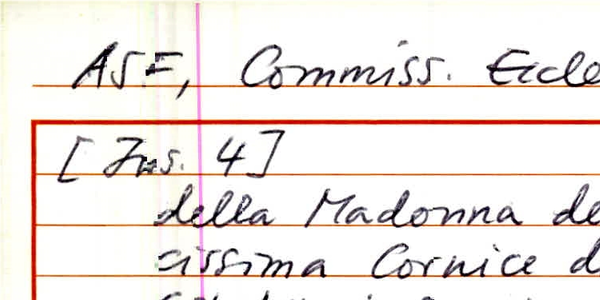 ASF, Commiss. Eccle
[Ins. 4]
della Madonna de
cissima Cornice d